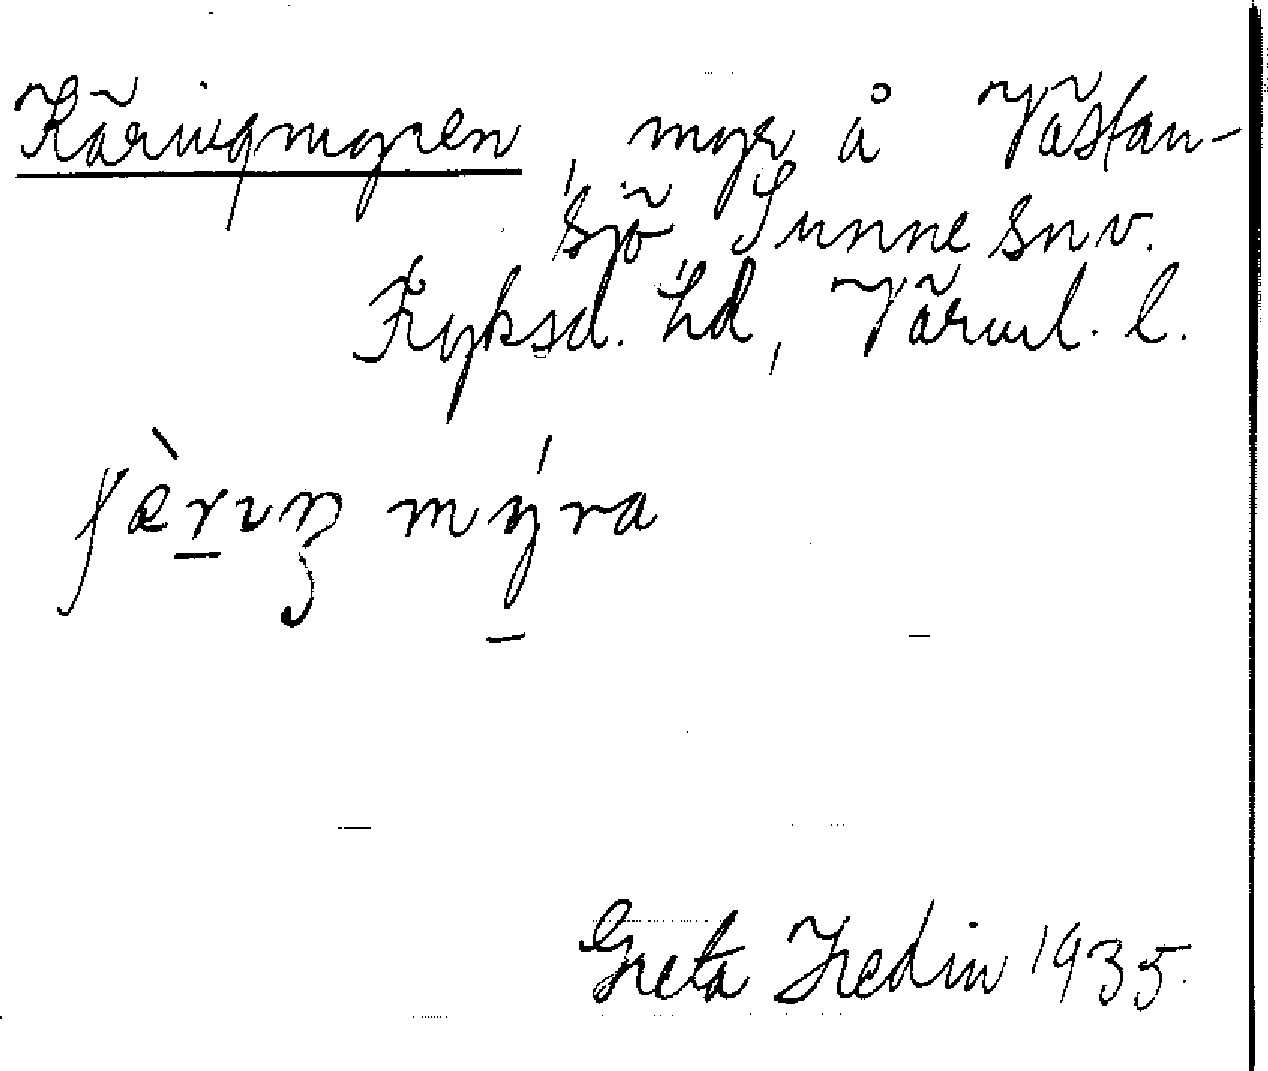 Käringmyren, myr å Västan-
sjö Sunne snv.
Fryksd. hd, Värml. l.
ʃæ̀rɪŋ mýra
Greta Hedin 1935.